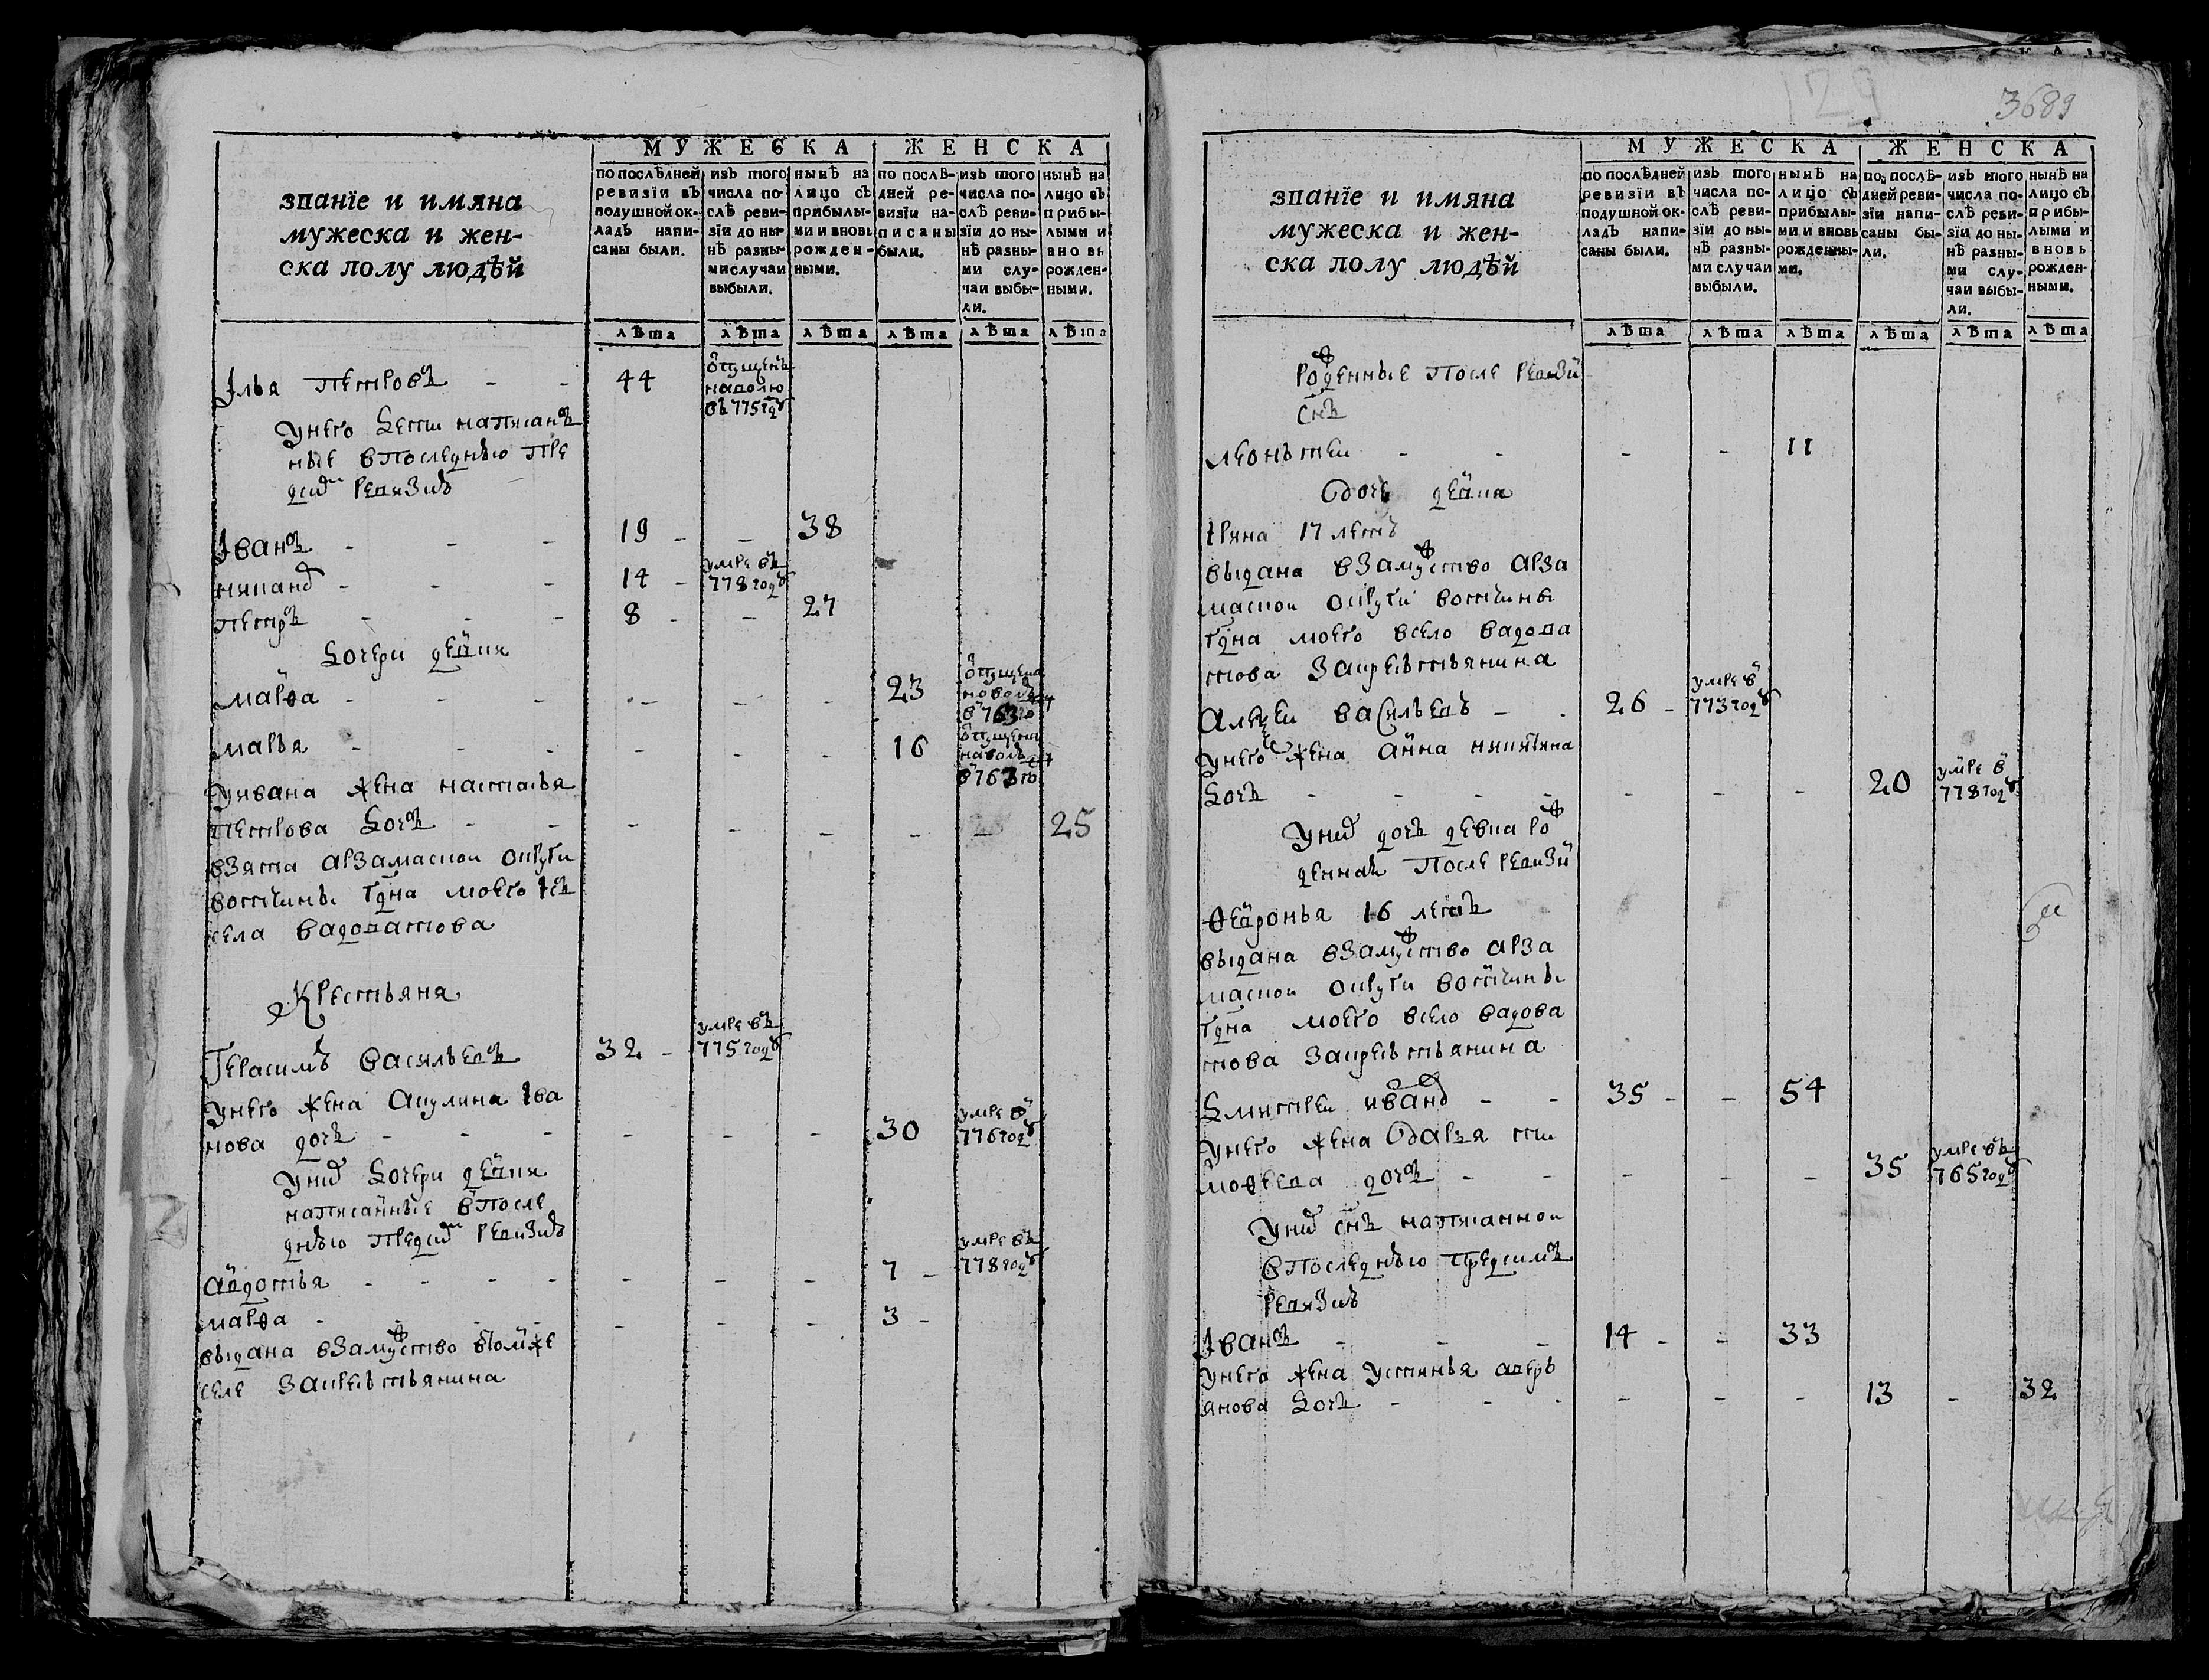 МУЖЕСКА
ЖЕНСКА
званїе и имяна
мужеска и жен-
ска полу людѣй
по послѣдней
ревизїи въ
подушной ок-
ладъ напи-
саны были.
изъ того
числа по-
слѣ реви-
зїи до ны-
нѣ разны-
ми случаи
выбыли.
нынѣ на
лицо съ
прибылы-
ми и вновь
рожден-
ными.
по послѣ-
дней ре-
визїи на-
писаны
были.
изъ того
числа по-
слѣ реви-
зїи до ны-
нѣ разны-
ми слу-
чаи выбы-
ли.
нынѣ на
лицо съ
прибы-
лыми и
вновь
рожден-
ными.
лѣта лѣта лѣта лѣта лѣта лѣта
Iлья Петровъ - - 44 отпущенъ на волю въ 775 году
у него дети написан
ные в последнюю пре
д сим ревизию
Iванъ - - - 19 - - 38
- - - 14 - умре въ 778 году
Петръ - - - 8 - - 27
дочери девки
Марфа - - - - - - 23 отпущена на волю в 763 го
Марья - - - - - - 16 отпущена на волю в 763 го
у ивана жена Наталья
Петрова дочь - - - - - - - 25
взята арзамаской округи
вотчины гдна моего изъ
села вадоватова
Крестьяня
Герасимъ Васильевъ 32 - умре въ 775 году
у него жена Акулина Iва
нова дочь - - - - - - 30 умре в 776 году
у них дочери девки
написанные в после
днюю пред сим ревизию
Авдотья - - - - - - - 7 - умре въ 778 году
Марфа - - - - - - 3 -
выдана в замужство в том же
селе за крестьянина
3689
МУЖЕСКА
ЖЕНСКА
званїе и имяна
мужеска и жен-
ска полу людѣй
по послѣдней
ревизїи въ
подушной ок-
ладъ напи-
саны были.
изъ того
числа по-
слѣ реви-
зїи до ны-
нѣ разны-
ми случаи
выбыли.
нынѣ на
лицо съ
прибылы-
ми и вновь
рожденны-
ми.
по послѣ-
дней реви-
зїи напи-
саны бы-
ли.
изъ того
числа по-
слѣ реви-
зїи до ны-
нѣ разны-
ми слу-
чаи выбы-
ли.
нынѣ на
лицо съ
прибы-
лыми и
вновь
рожден-
ными.
лѣта лѣта лѣта лѣта лѣта лѣта
Рожденные после ревизи
снъ
Леонътеи - - - - 11
дочь девка
Iрина 17 летъ
выдана в замужство арза
маскои округи вотчины
гдна моего в село вадова
това за крестьянина
Алексеи Васильевъ - - 26 - умре в 773 году
у него жена Анна Никитина
дочь - - - - - - - 20 умре в 778 году
у них дочь девка рож
денная после ревизи
Февронья 16 летъ
выдана в замужство арза
маскои округи вотчины
гдна моего в село вадова
това за крестьянина
Дмитреи Иванов - - 35 - - 54
у него жена Дарья Ти
мофеева дочь - - - - - 35 умре въ 765 году
у них снъ написаннои
в последнюю пред симъ
ревизию
Iванъ - - - 14 - - 33
у него жена Устинья Авер
янова дочь - - - - - - 13 - 32